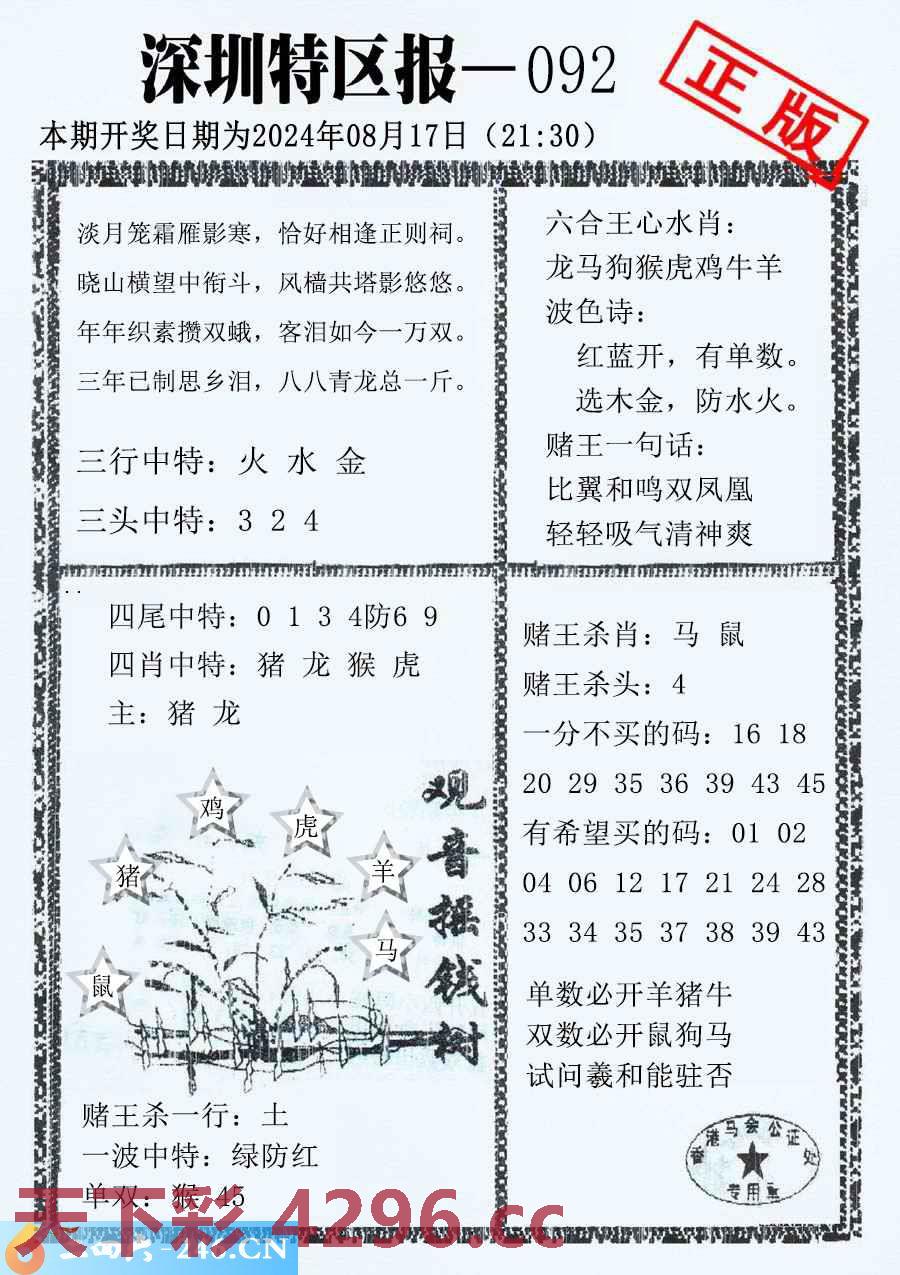 深圳特区报—092
正版
本期开奖日期为2024年08月17日（21:30）
淡月笼霜雁影寒，恰好相逢正则祠。
晓山横望中衔斗，风樯共塔影悠悠。
年年织素攒双蛾，客泪如今一万双。
三年已制思乡泪，八八青龙总一斤。
三行中特：火 水 金
三头中特：3 2 4
六合王心水肖：
龙马狗猴虎鸡牛羊
波色诗：
红蓝开，有单数。
选木金，防水火。
赌王一句话：
比翼和鸣双凤凰
轻轻吸气清神爽
四尾中特：0 1 3 4防6 9
四肖中特：猪 龙 猴 虎
主：猪 龙
鸡
虎
猪
羊
马
鼠
观音摇钱树
赌王杀一行：土
一波中特：绿防红
单双：猴 45
赌王杀肖：马 鼠
赌王杀头：4
一分不买的码：16 18
20 29 35 36 39 43 45
有希望买的码：01 02
04 06 12 17 21 24 28
33 34 35 37 38 39 43
单数必开羊猪牛
双数必开鼠狗马
试问羲和能驻否
香港马会公证处
专用章
天下彩 4296.cc
-246.CN